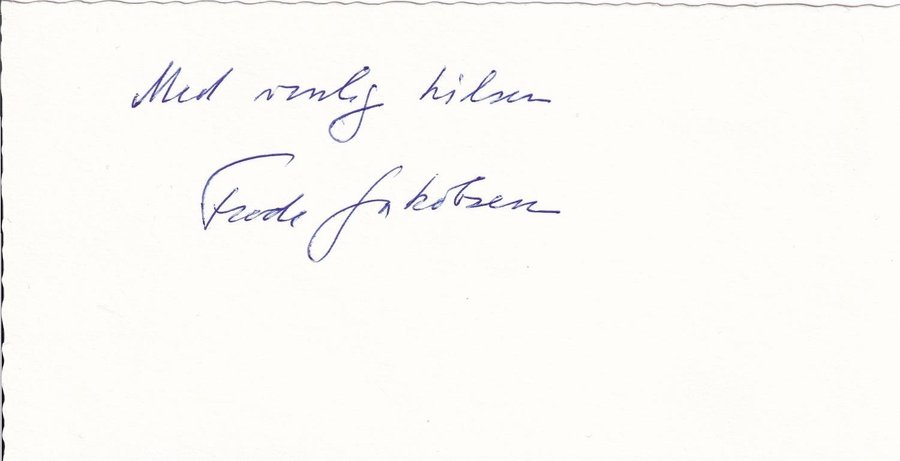 Med venlig hilsen
Frode Jakobsen